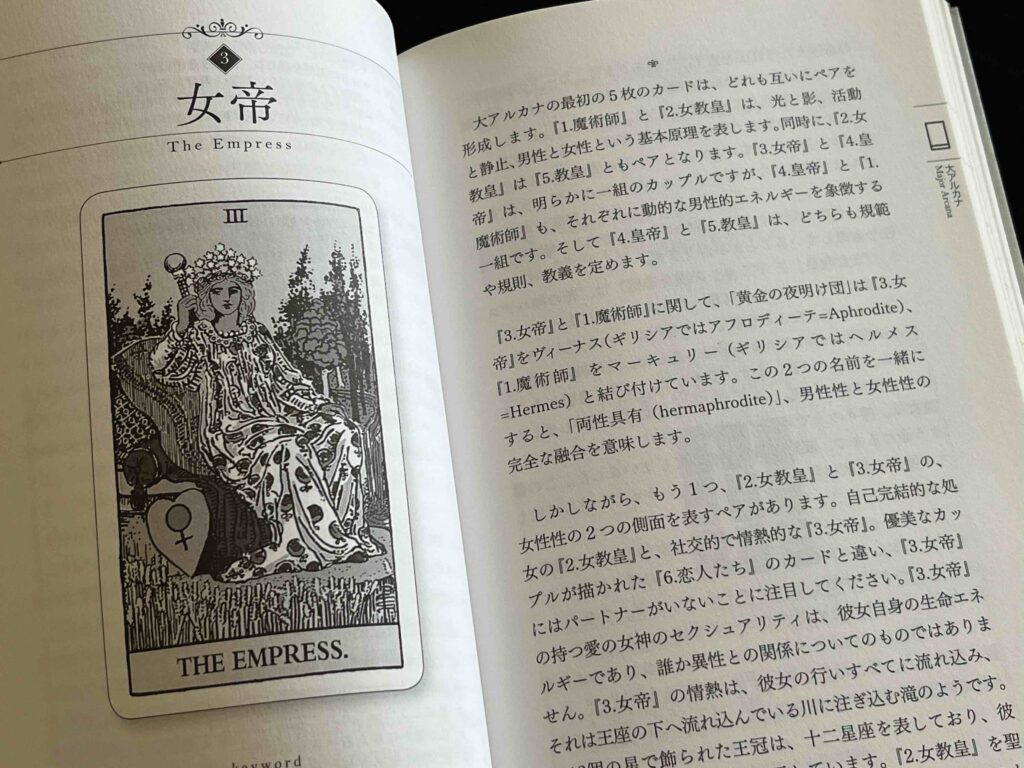 3
女帝
The Empress
III
THE EMPRESS.
keyword
大アルカナの最初の5枚のカードは、どれも互いにペアを
形成します。『1.魔術師』と『2.女教皇』は、光と影、活動
と静止、男性と女性という基本原理を表します。同時に、『2.女
教皇』は『5.教皇』ともペアとなります。『3.女帝』と『4.皇
帝』は、明らかに一組のカップルですが、『4.皇帝』と『1.
魔術師』も、それぞれに動的な男性的エネルギーを象徴する
一組です。そして『4.皇帝』と『5.教皇』は、どちらも規範
や規則、教義を定めます。
『3.女帝』と『1.魔術師』に関して、「黄金の夜明け団」は『3.女
帝』をヴィーナス(ギリシアではアフロディーテ=Aphrodite)、
『1.魔術師』をマーキュリー(ギリシアではヘルメス
=Hermes)と結び付けています。この2つの名前を一緒に
すると、「両性具有(hermaphrodite)」、男性性と女性性の
完全な融合を意味します。
しかしながら、もう1つ、『2.女教皇』と『3.女帝』の、
女性性の2つの側面を表すペアがあります。自己完結的な処
女の『2.女教皇』と、社交的で情熱的な『3.女帝』。優美なカッ
プルが描かれた『6.恋人たち』のカードと違い、『3.女帝』
にはパートナーがいないことに注目してください。『3.女帝』
の持つ愛の女神のセクシュアリティは、彼女自身の生命エネ
ルギーであり、誰か異性との関係についてのものではありま
せん。『3.女帝』の情熱は、彼女の行いすべてに流れ込み、
それは王座の下へ流れ込んでいる川に注ぎ込む滝のようです。
個の星で飾られた王冠は、十二星座を表しており、彼
ています。『2.女教皇』を聖
大アルカナ
Major Arcana